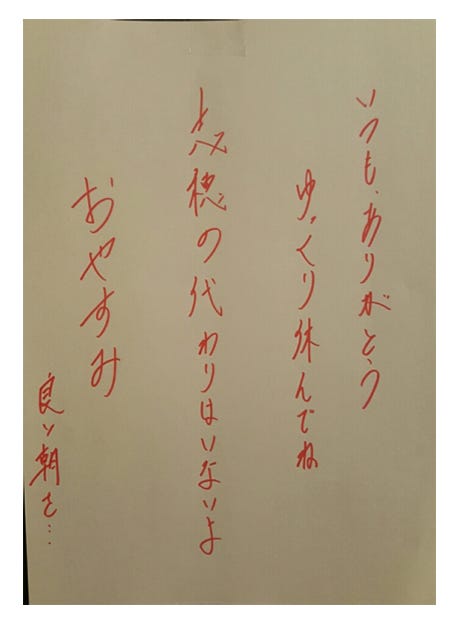 いつも、ありがとう
ゆっくり休んでね
志穂の代わりはいないよ
おやすみ
良い朝を…